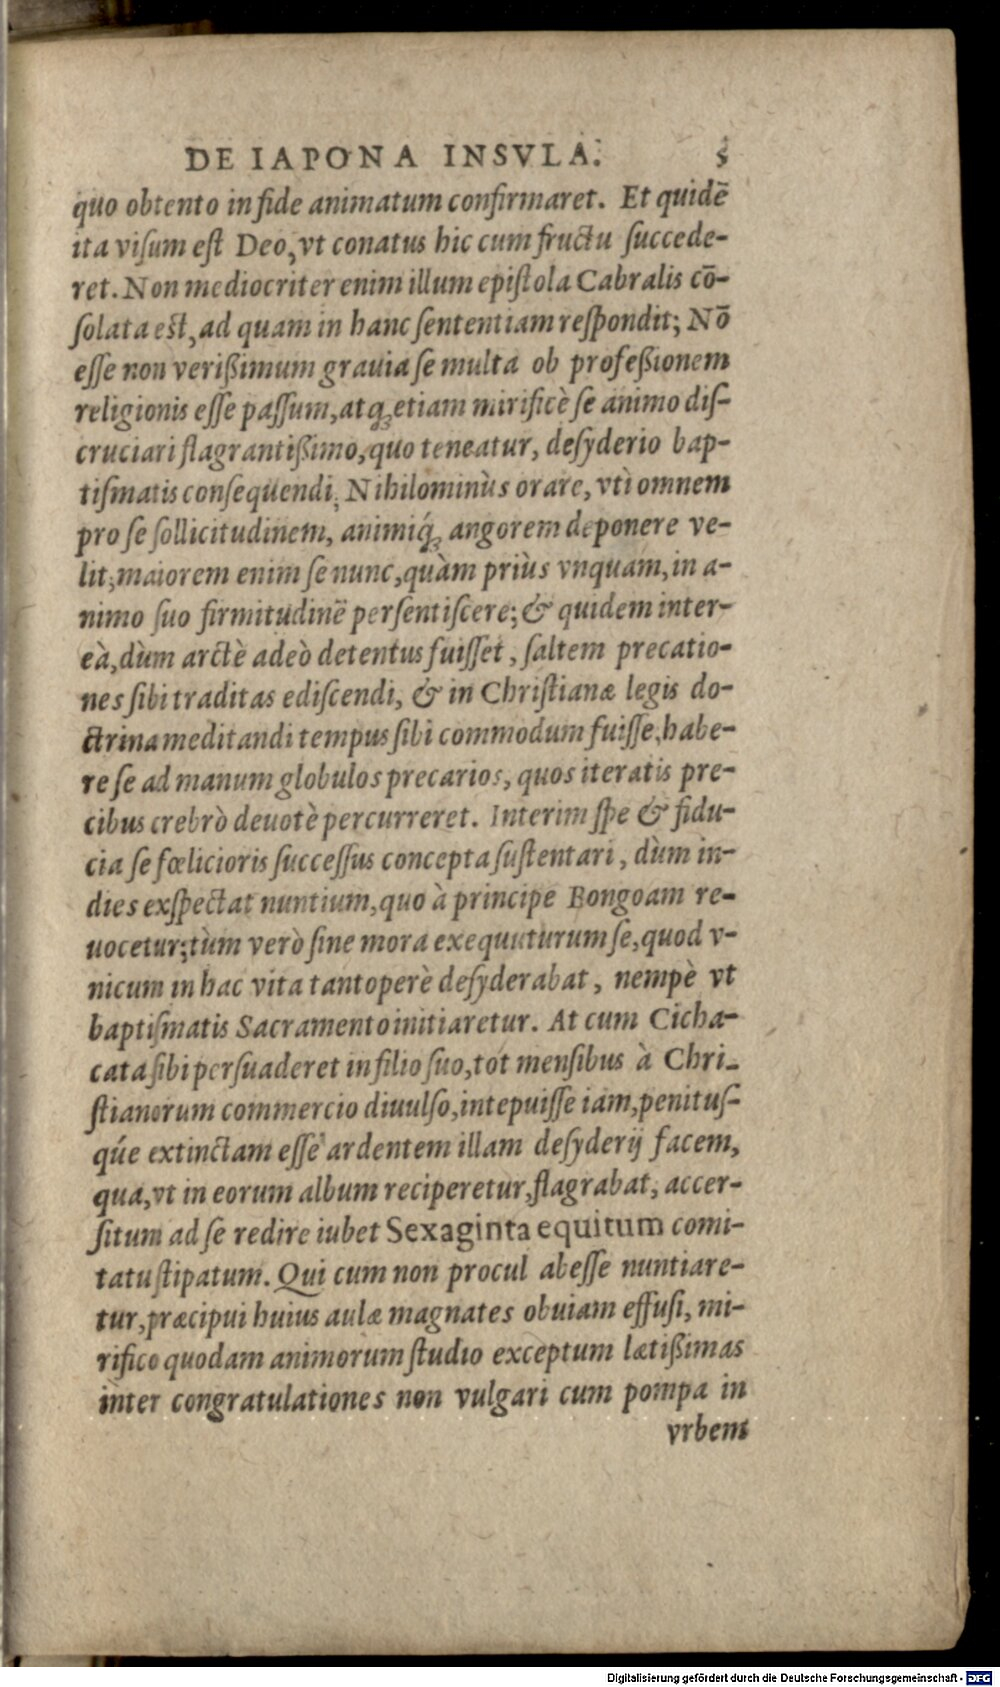 DE IAPONA INSVLA. 5
quo obtento in fide animatum confirmaret. Et quidē
ita viſum eſt Deo, vt conatus hic cum fructu ſuccede-
ret. Non mediocriter enim illum epiſtola Cabralis cō-
ſolata est, ad quam in hanc ſententiam reſpondit; Nō
eſſe non verißimum grauia ſe multa ob profeßionem
religionis eſſe paſſum, atq́ꝫ etiam mirificè ſe animo diſ-
cruciari flagrantißimo, quo teneatur, deſyderio bap-
tiſmatis conſequendi, Nihilominùs orare, vtì omnem
pro ſe ſollicitudinem, animiq́ꝫ angorem deponere ve-
lit, maiorem enim ſe nunc, quàm priùs vnquam, in a-
nimo ſuo firmitudinē perſentiſcere; & quidem inter-
eà, dùm arctè adeò detentus fuiſſet, ſaltem precatio-
nes ſibi traditas ediſcendi, & in Chriſtianæ legis do-
ctrina meditandi tempus ſibi commodum fuiſſe, habe-
re ſe ad manum globulos precarios, quos iteratis pre-
cibus crebrò deuotè percurreret. Interim ſpe & fidu-
cia ſe fœlicioris ſucceſſus concepta ſuſtentari, dùm in-
dies exſpectat nuntium, quo à principe Bongoam re-
uocetur; tùm verò ſine mora exequuturum ſe, quod v-
nicum in hac vita tantoperè deſyderabat, nempè vt
baptiſmatis Sacramento initiaretur. At cum Cicha-
cata ſibi perſuaderet in filio ſuo, tot menſibus à Chri-
ſtianorum commercio diuulſo, intepuiſſe iam, penituſ-
qúe extinctam eſſe ardentem illam deſyderij facem,
qua, vt in eorum album reciperetur, flagrabat, accer-
ſitum ad ſe redire iubet Sexaginta equitum comi-
tatu ſtipatum. Qui cum non procul abeſſe nuntiare-
tur, præcipui huius aulæ magnates obuiam effuſi, mi-
rifico quodam animorum ſtudio exceptum lætißimas
inter congratulationes non vulgari cum pompa in
vrbem
Digitalisierung gefördert durch die Deutsche Forschungsgemeinschaft - DFG